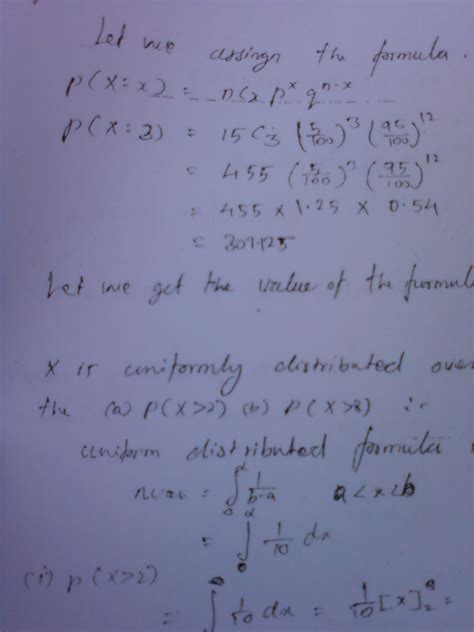 Let me assign the formula.
P(X=x) = nCx p^x q^n-x
P(X=3) = 15C3 (5/100)^3 (95/100)^12
= 455 (5/100)^3 (95/100)^12
= 455 x 1.25 x 0.54
= 307.125
Let me get the value of the formula
X is uniformly distributed over
the (a) P(X>2) (b) P(X>8) :-
uniform distributed formula
= ∫ 1/b-a a<x<b
= ∫ 1/10 dx
(i) P(X>2)
= ∫ 1/10 dx = 1/10 [x]_2 =